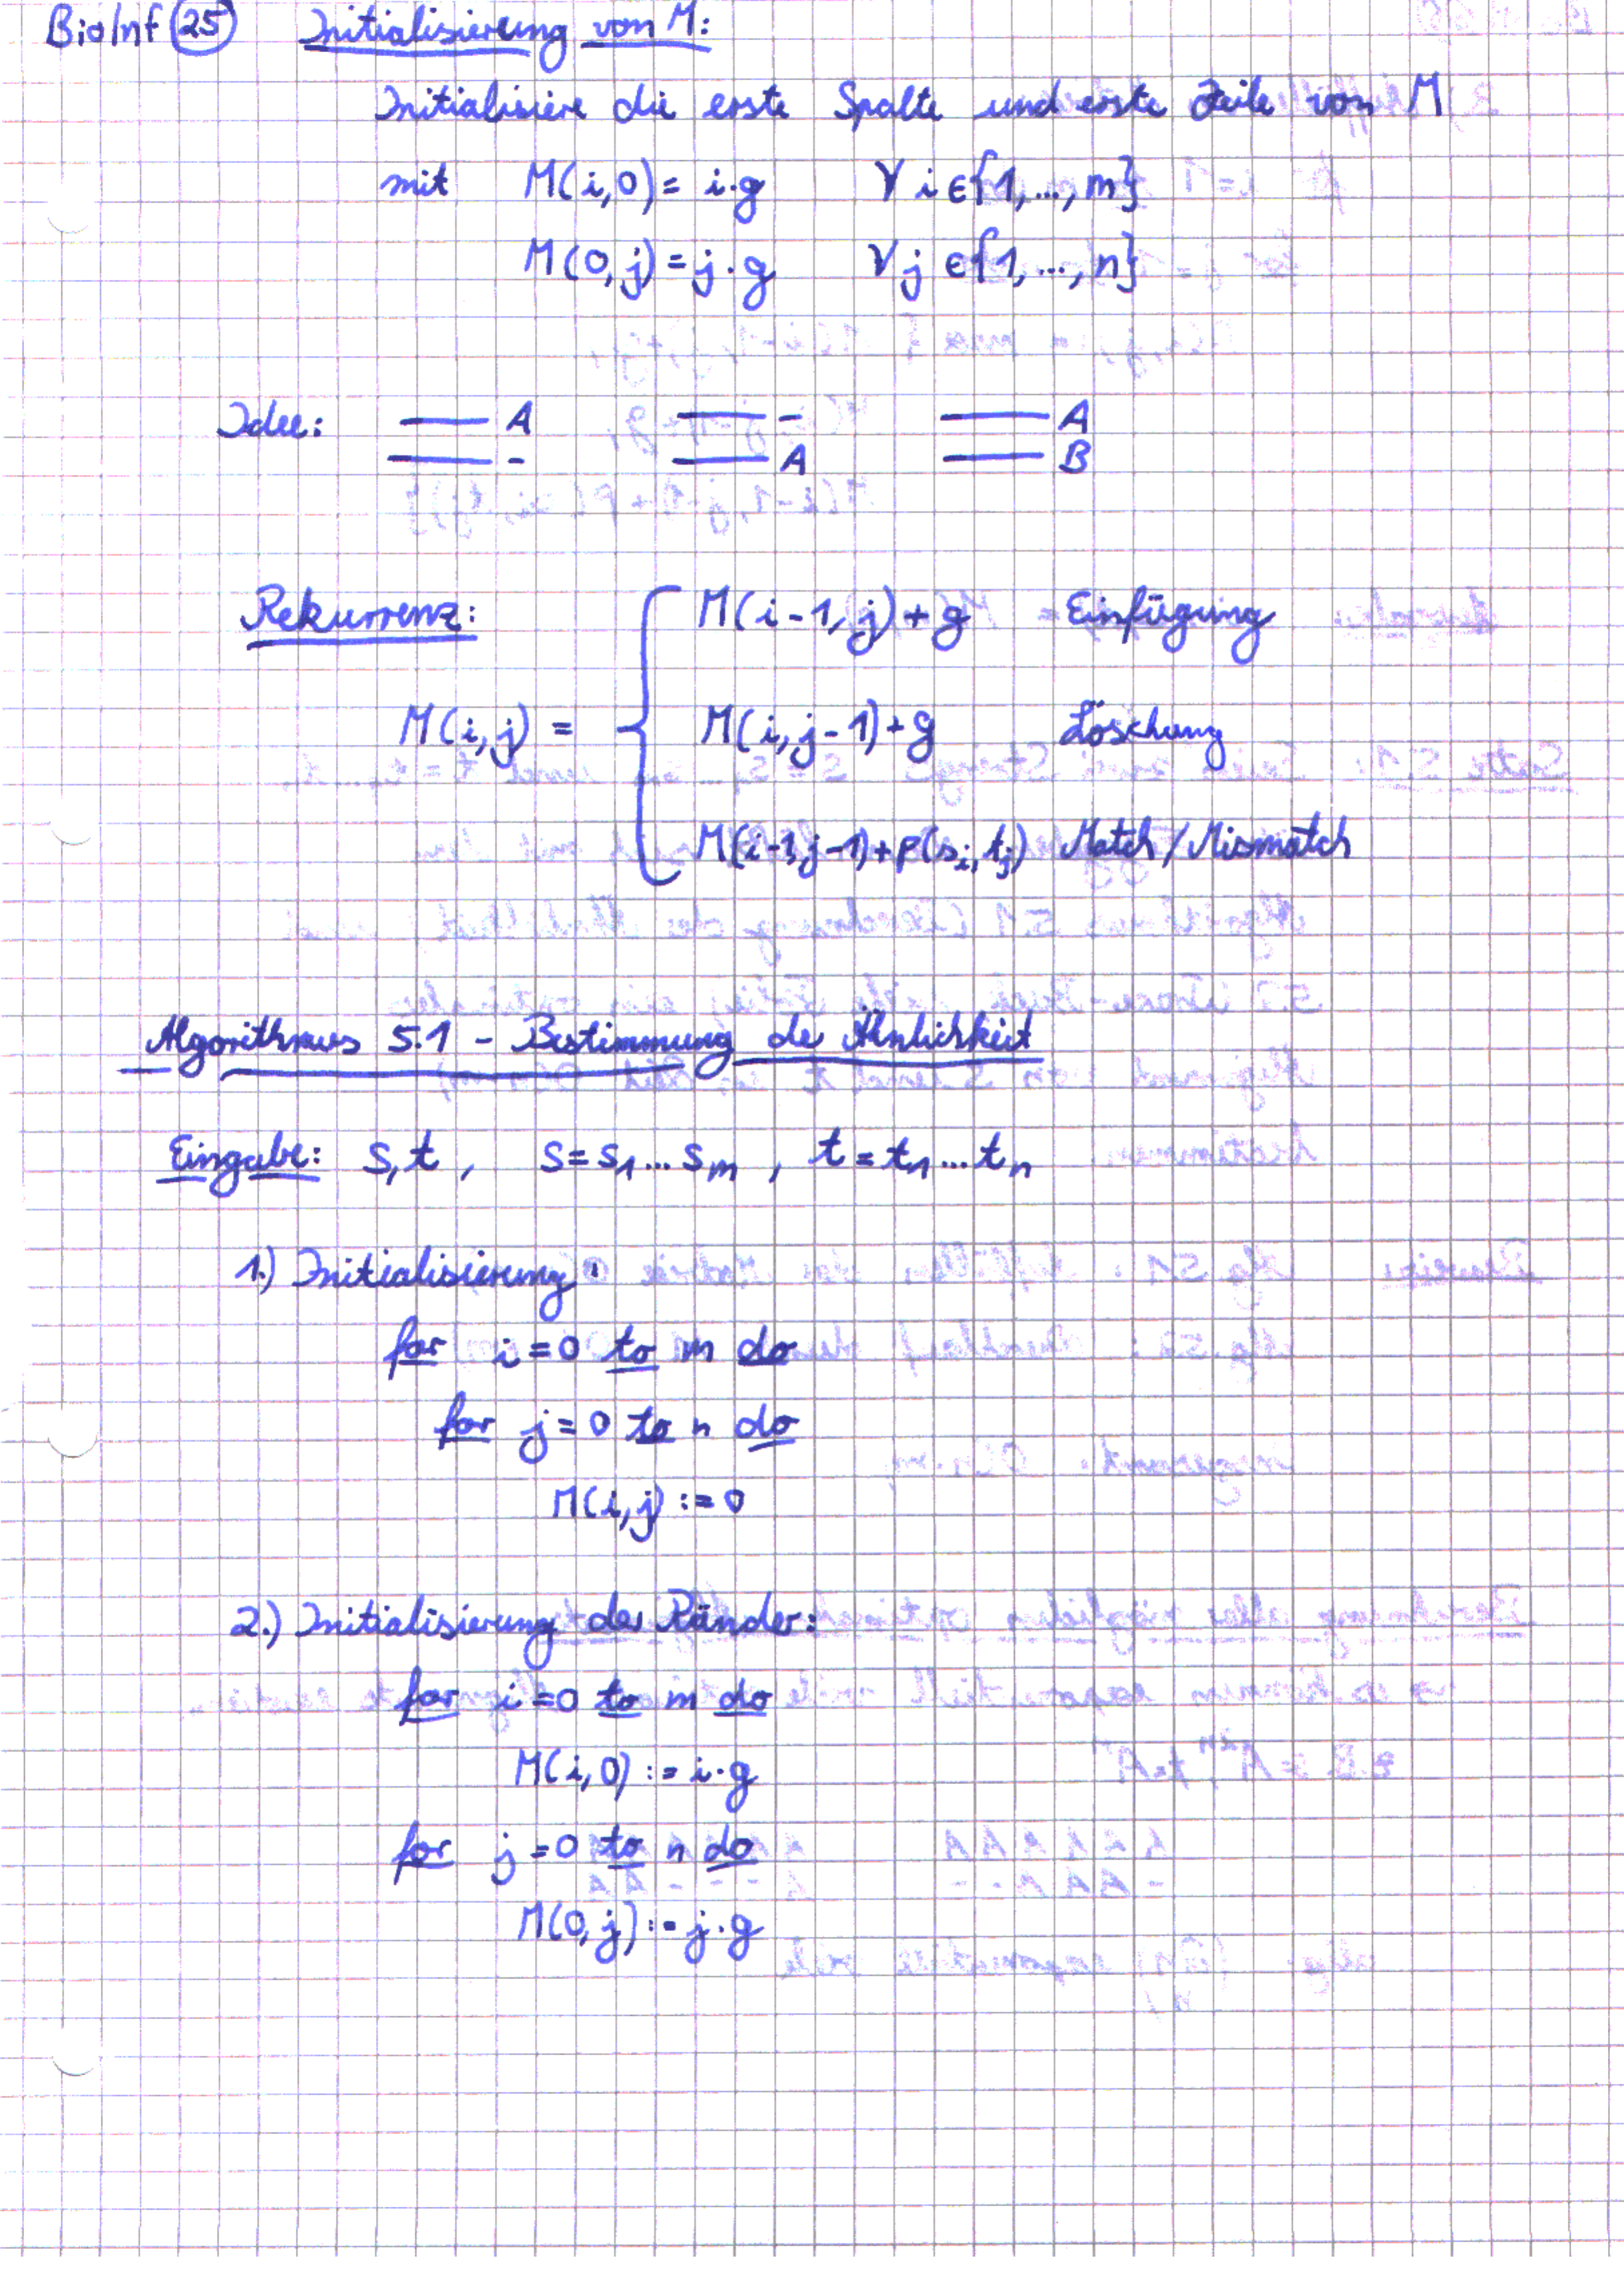 BioInf 25 Initialisierung von M:
Initialisiere die erste Spalte und erste Zeile von M
mit M(i,0) = i·g ∀ i ∈ {1,...,m}
M(0,j) = j·g ∀ j ∈ {1,...,n}
Idee: A - A
- A B
Rekurrenz: M(i-1,j)+g Einfügung
M(i,j) = M(i,j-1)+g Löschung
M(i-1,j-1)+p(s_i,t_j) Match/Mismatch
Algorithmus 5.1 - Bestimmung der Ähnlichkeit
Eingabe: s,t, s=s_1...s_m, t=t_1...t_n
1.) Initialisierung:
for i=0 to m do
for j=0 to n do
M(i,j) := 0
2.) Initialisierung der Ränder:
for i=0 to m do
M(i,0) := i·g
for j=0 to n do
M(0,j) := j·g